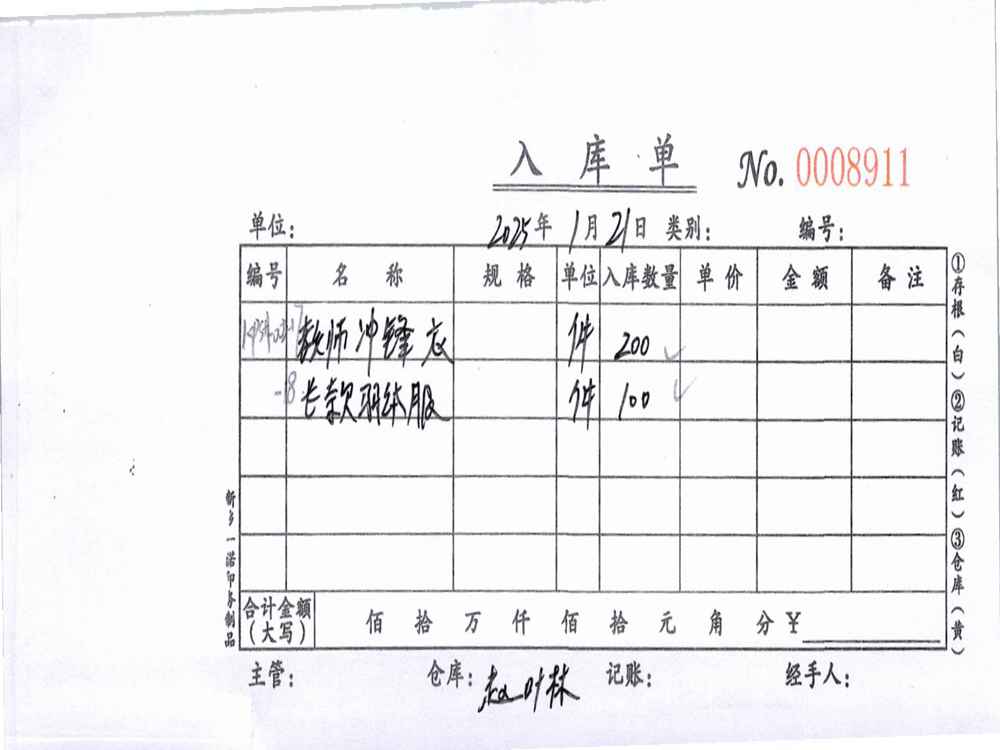 入库单 No. 0008911
单位： 2025年1月21日 类别： 编号：
编号 名称 规格 单位 入库数量 单价 金额 备注
教师冲锋衣 件 200
-8 长款羽绒服 件 100
合计金额（大写） 佰 拾 万 仟 佰 拾 元 角 分 ￥
主管： 仓库：赵叶林 记账： 经手人：
①存根（白）②记账（红）③仓库（黄）
新乡一诺印务制品